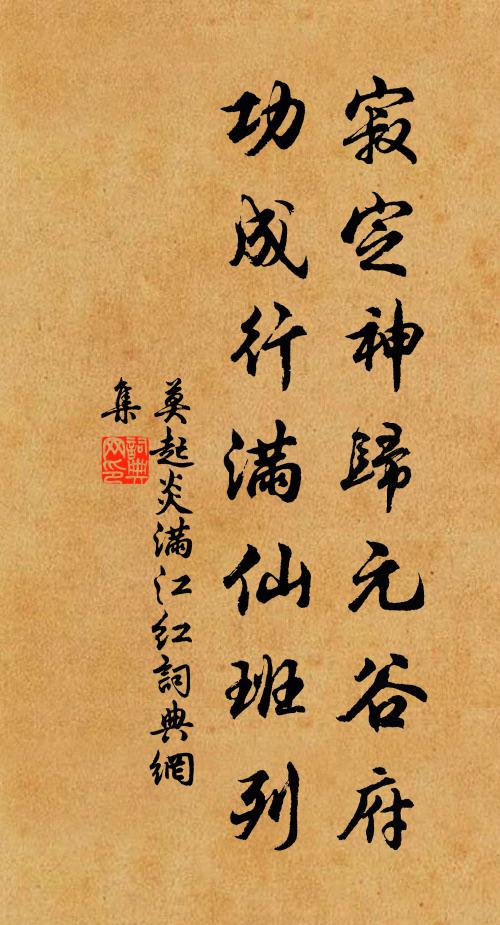 寂定神歸元谷府
功成行滿仙班列
莫起炎滿江紅詞典網
集